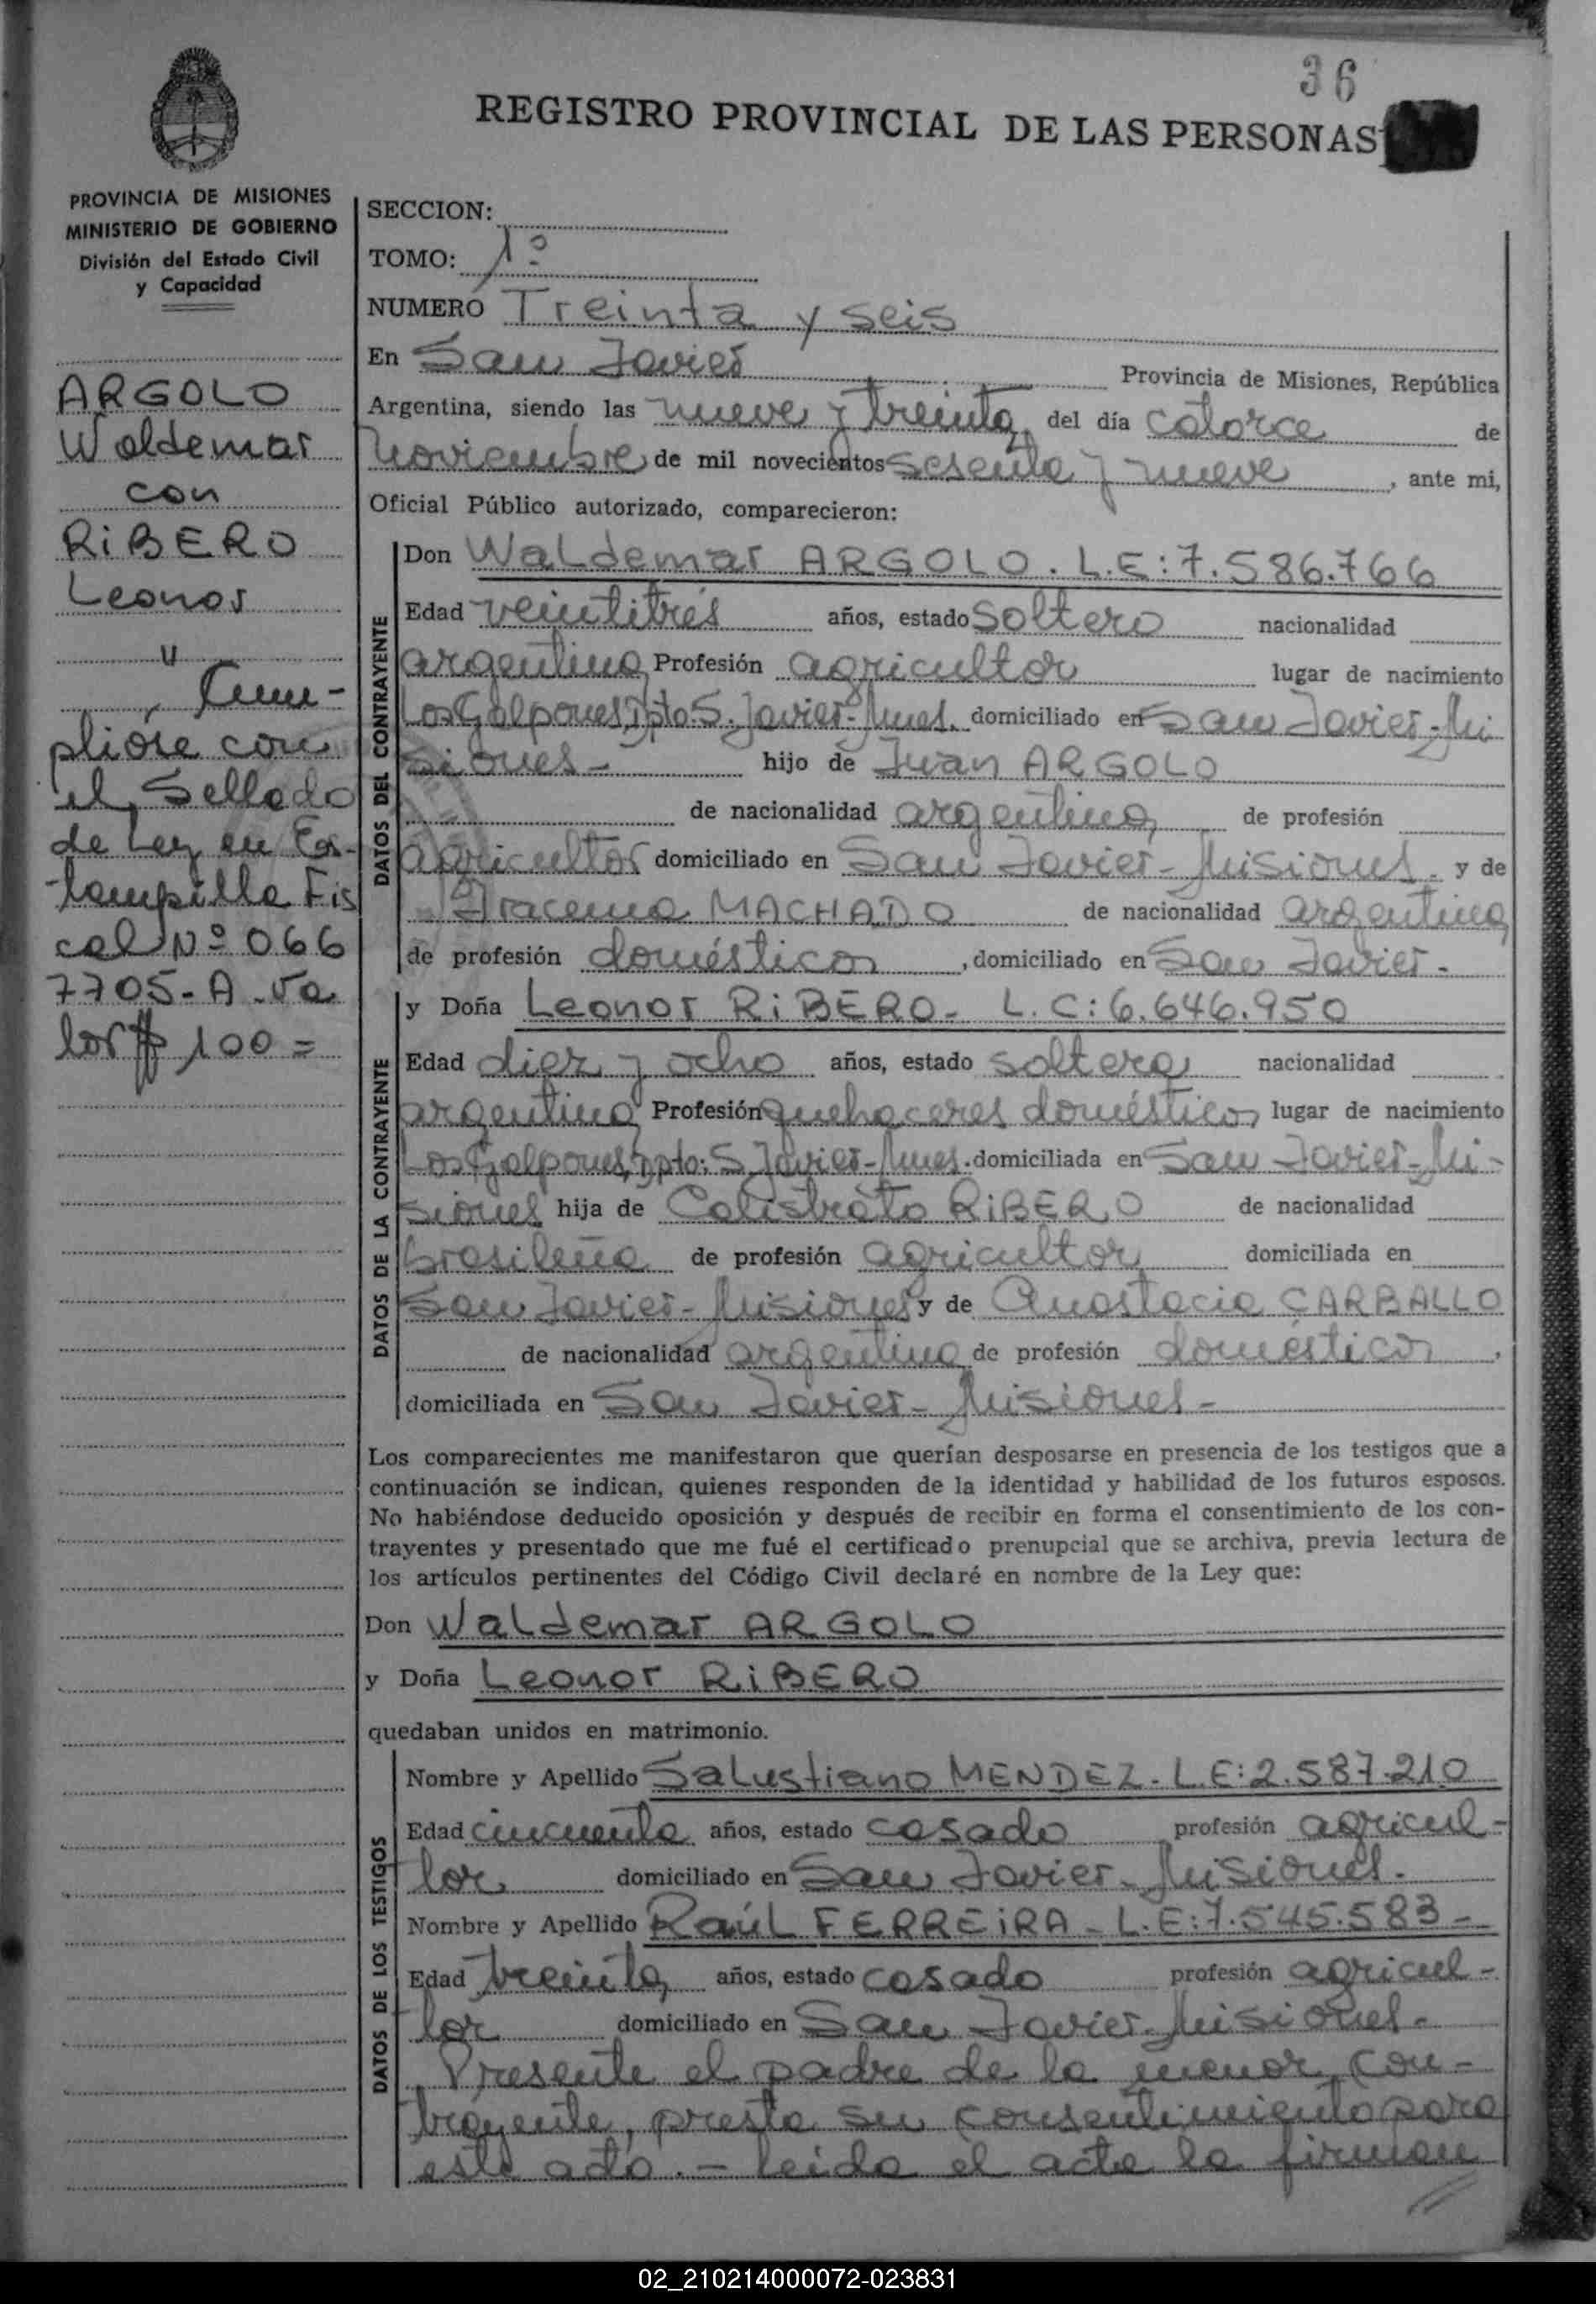 36
REGISTRO PROVINCIAL DE LAS PERSONAS
PROVINCIA DE MISIONES
MINISTERIO DE GOBIERNO
División del Estado Civil
y Capacidad
ARGOLO
Waldemar
con
RiBERO
Leonor
"
, Cum-
plióse con
el Sellado
de Ley en Es-
tampilla Fis
cal Nº 066
7705-A-va
lor $ 100=
SECCION:
TOMO: 1º
NUMERO Treinta y seis
En San Javier Provincia de Misiones, República
Argentina, siendo las nueve y treinta del día catorce de
noviembre de mil novecientos sesenta y nueve, ante mi,
Oficial Público autorizado, comparecieron:
DATOS DEL CONTRAYENTE
Don Waldemar ARGOLO. L.E:7.586.766
Edad veintitrés años, estado soltero nacionalidad
argentina Profesión agricultor lugar de nacimiento
Los Galpones, Dpto. S. Javier-Mnes. domiciliado en San Javier-Mi
siones- hijo de Juan ARGOLO
de nacionalidad argentina de profesión
agricultor domiciliado en San Javier-Misiones. y de
Iracema MACHADO de nacionalidad argentina
de profesión domésticos, domiciliado en San Javier-
DATOS DE LA CONTRAYENTE
y Doña Leonor RiBERO- L.C:6.646.950
Edad diez y ocho años, estado soltera nacionalidad
argentina Profesión quehaceres domésticos lugar de nacimiento
Los Galpones, Dpto: S. Javier-Mnes. domiciliada en San Javier-Mi-
siones hija de Calistrato RiBERO de nacionalidad
brasileña de profesión agricultor domiciliada en
San Javier-Misiones y de Anastacia CARBALLO
de nacionalidad argentina de profesión domésticos,
domiciliada en San Javier-Misiones-
Los comparecientes me manifestaron que querían desposarse en presencia de los testigos que a
continuación se indican, quienes responden de la identidad y habilidad de los futuros esposos.
No habiéndose deducido oposición y después de recibir en forma el consentimiento de los con-
trayentes y presentado que me fué el certificado prenupcial que se archiva, previa lectura de
los artículos pertinentes del Código Civil declaré en nombre de la Ley que:
Don Waldemar ARGOLO
y Doña Leonor RiBERO
quedaban unidos en matrimonio.
DATOS DE LOS TESTIGOS
Nombre y Apellido Salustiano MENDEZ-L.E:2.587.210
Edad cincuenta años, estado casado profesión agricul-
tor domiciliado en San Javier-Misiones.
Nombre y Apellido Raúl FERREiRA-L.E:7.545.583-
Edad treinta años, estado casado profesión agricul-
tor domiciliado en San Javier-Misiones-
Presente el padre de la menor con-
trayente, presta su consentimiento para
este acto.- Leida el acta la firman
//
02_210214000072-023831